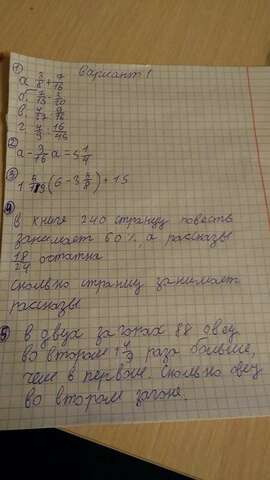 Вариант 1
①
а 3/8 + 7/16
б. 7/15 - 3/20
в.
г. 4/9 - 16/45
②
a - 9/16 a = 5 1/4
③
(6 - 3 5/8) + 15
④
В книге 240 страниц повесть
занимает 60% а рассказы
18/24 остатка
сколько страниц занимает
рассказы
⑤ в двух загонах 88 овец
во втором 1 4/7 раза больше,
чем в первом. Сколько овец
во втором загоне.